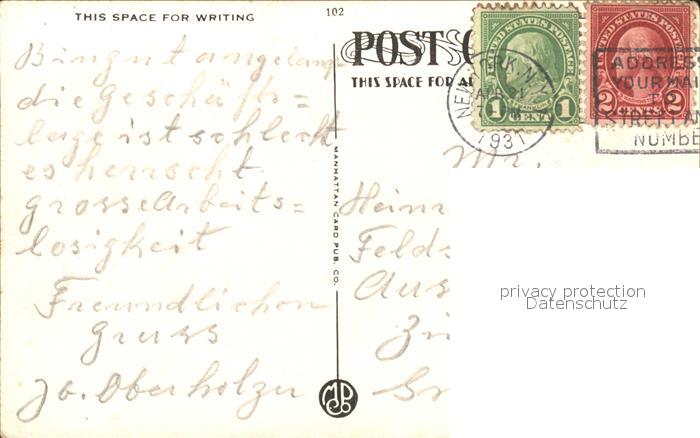 THIS SPACE FOR WRITING
Bin gut angelangt
die Geschäfts=
lage ist schlecht
es herrscht
grosse Arbeits=
losigkeit
Freundlichen
Gruss
Jb. Oberholzer
102
POST
THIS SPACE FOR
MANHATTAN CARD PUB. CO.
UNITED STATES POSTAGE
1 CENT 1
UNITED STATES POSTAGE
2 CENTS 2
NEW YORK, N.Y.
APR
1931
ADDRESS
YOUR MAIL
TO
STREET AND
NUMBE
Mr.
Heinr
Felds
Aus
Zü
privacy protection
Datenschutz